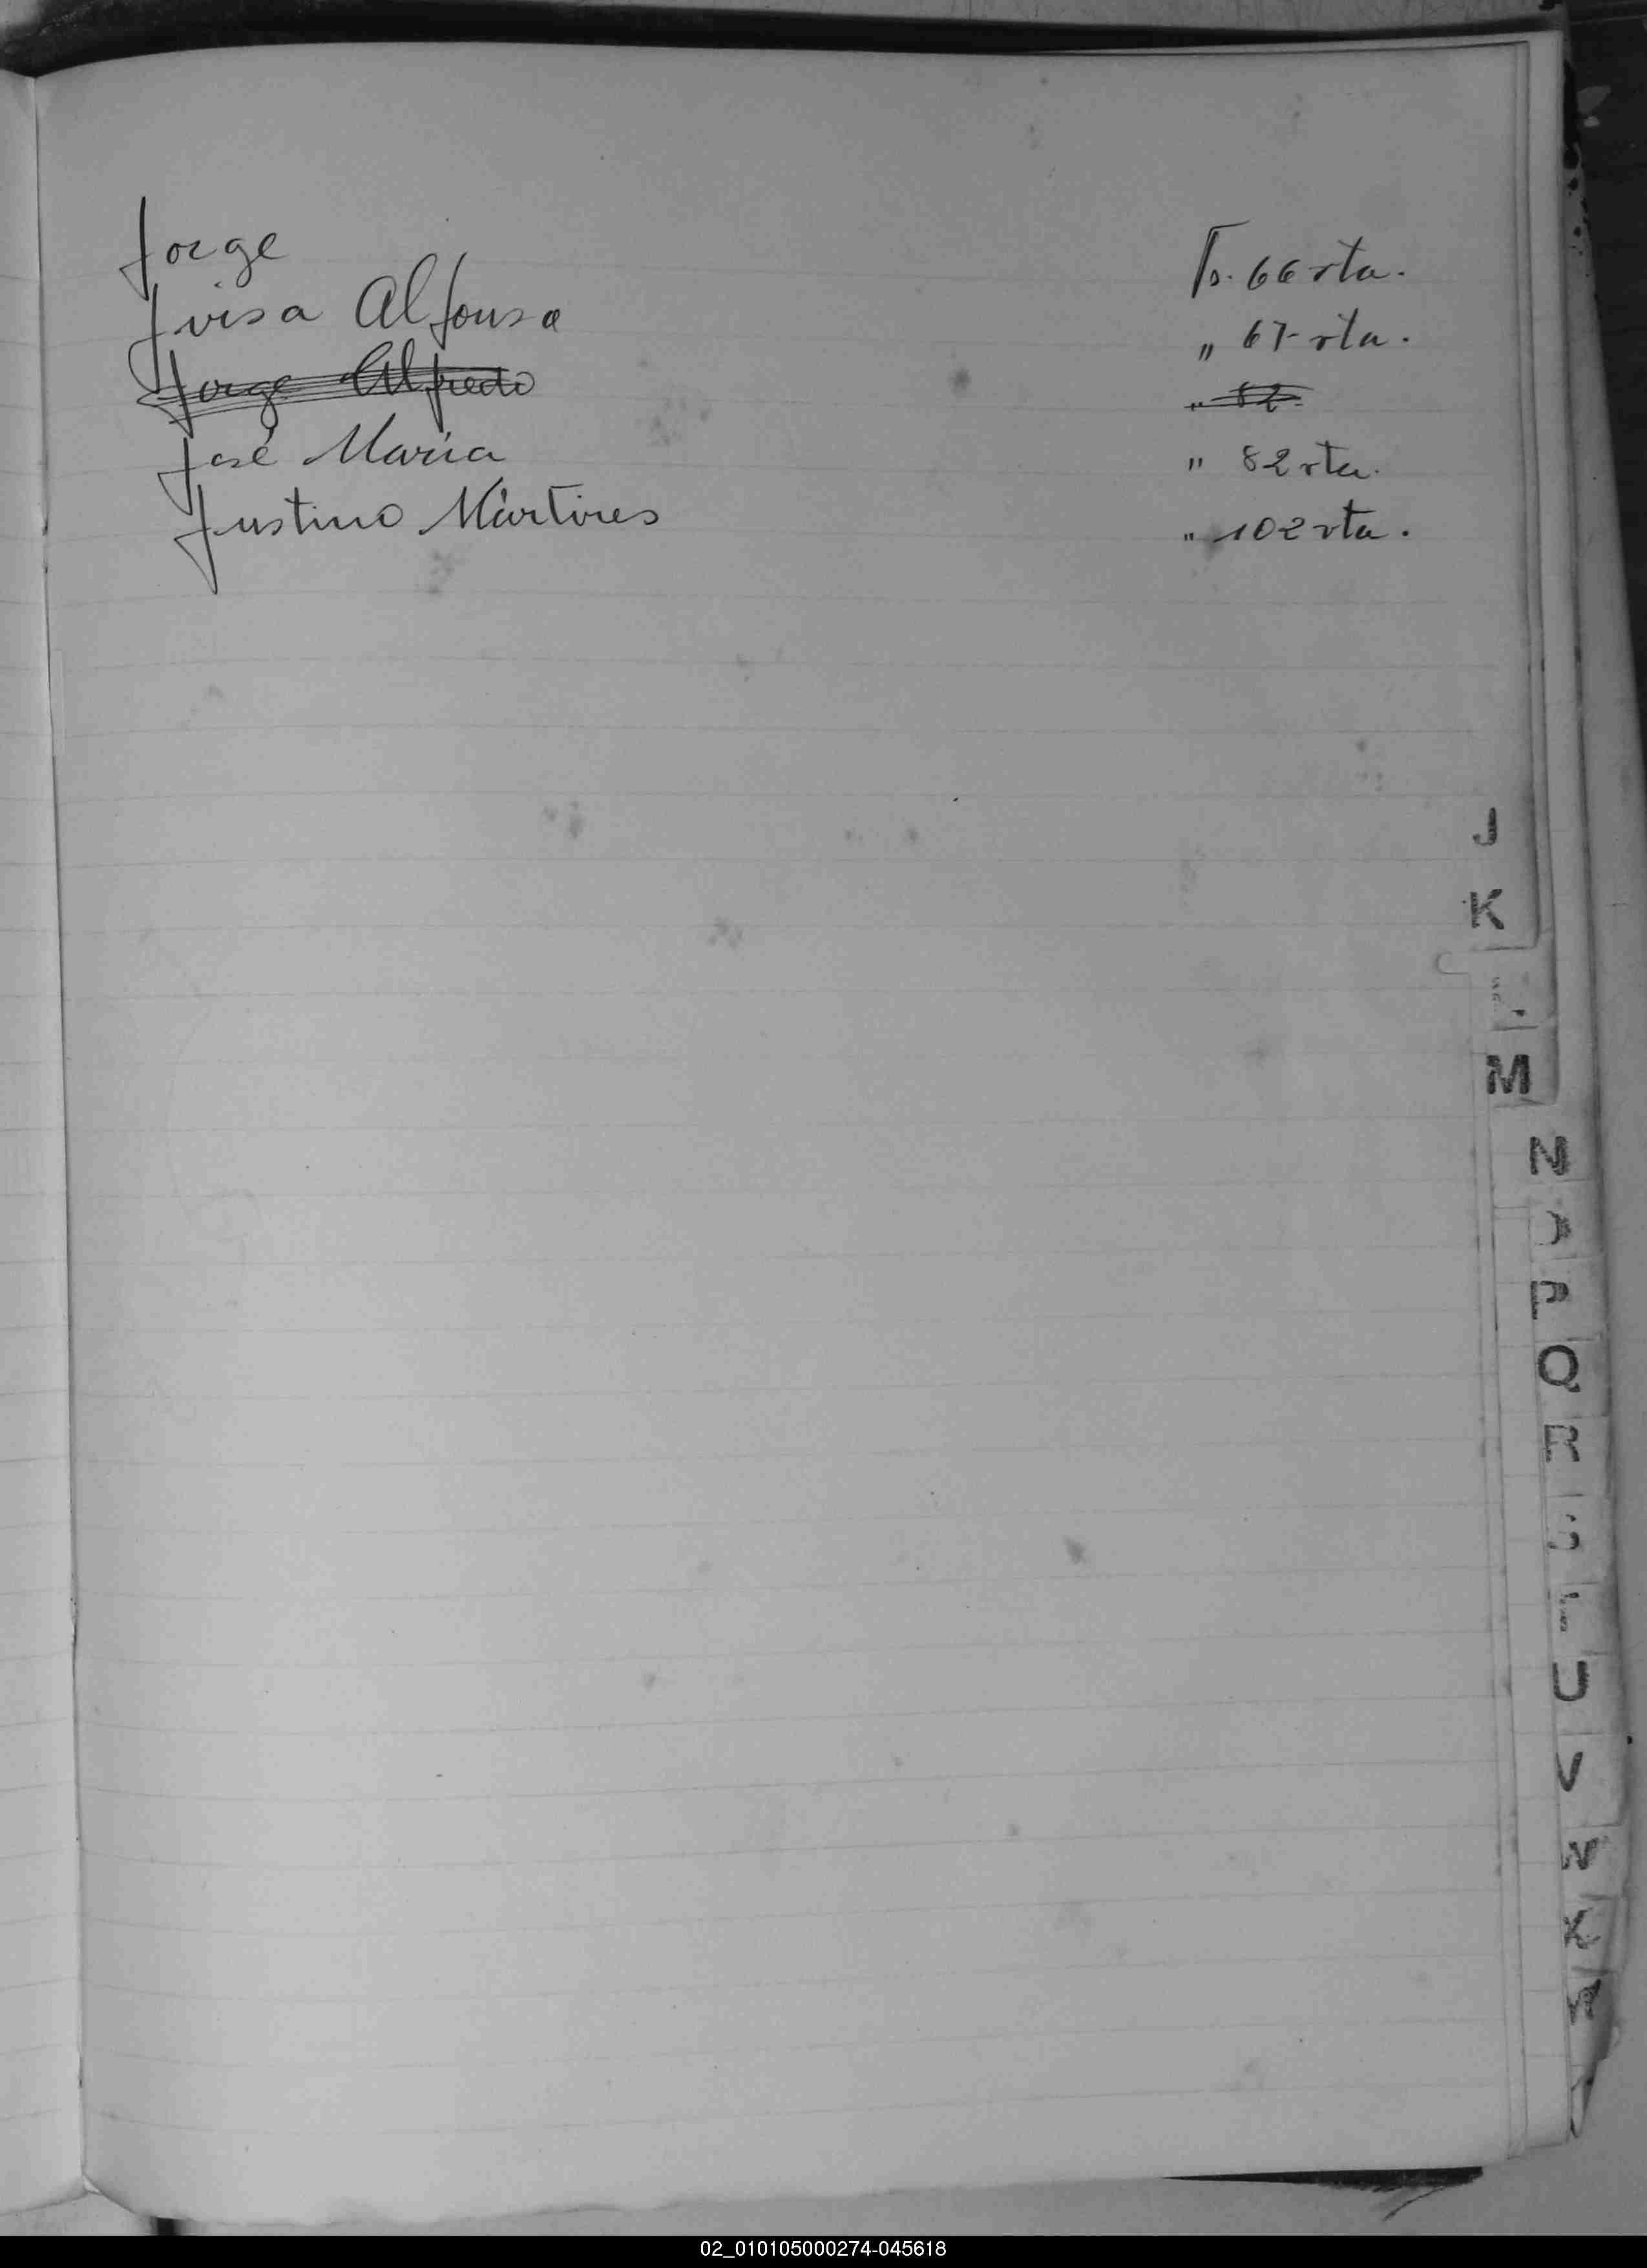 Jorge Fo. 66 vta.
Jvisa Alfonsa " 67 vta.
Jorge Alfredo " 82
José María " 82 vta.
Justino Mártires " 102 vta.
J
K
M
N
P
Q
R
U
V
W
X
Y
02_010105000274-045618